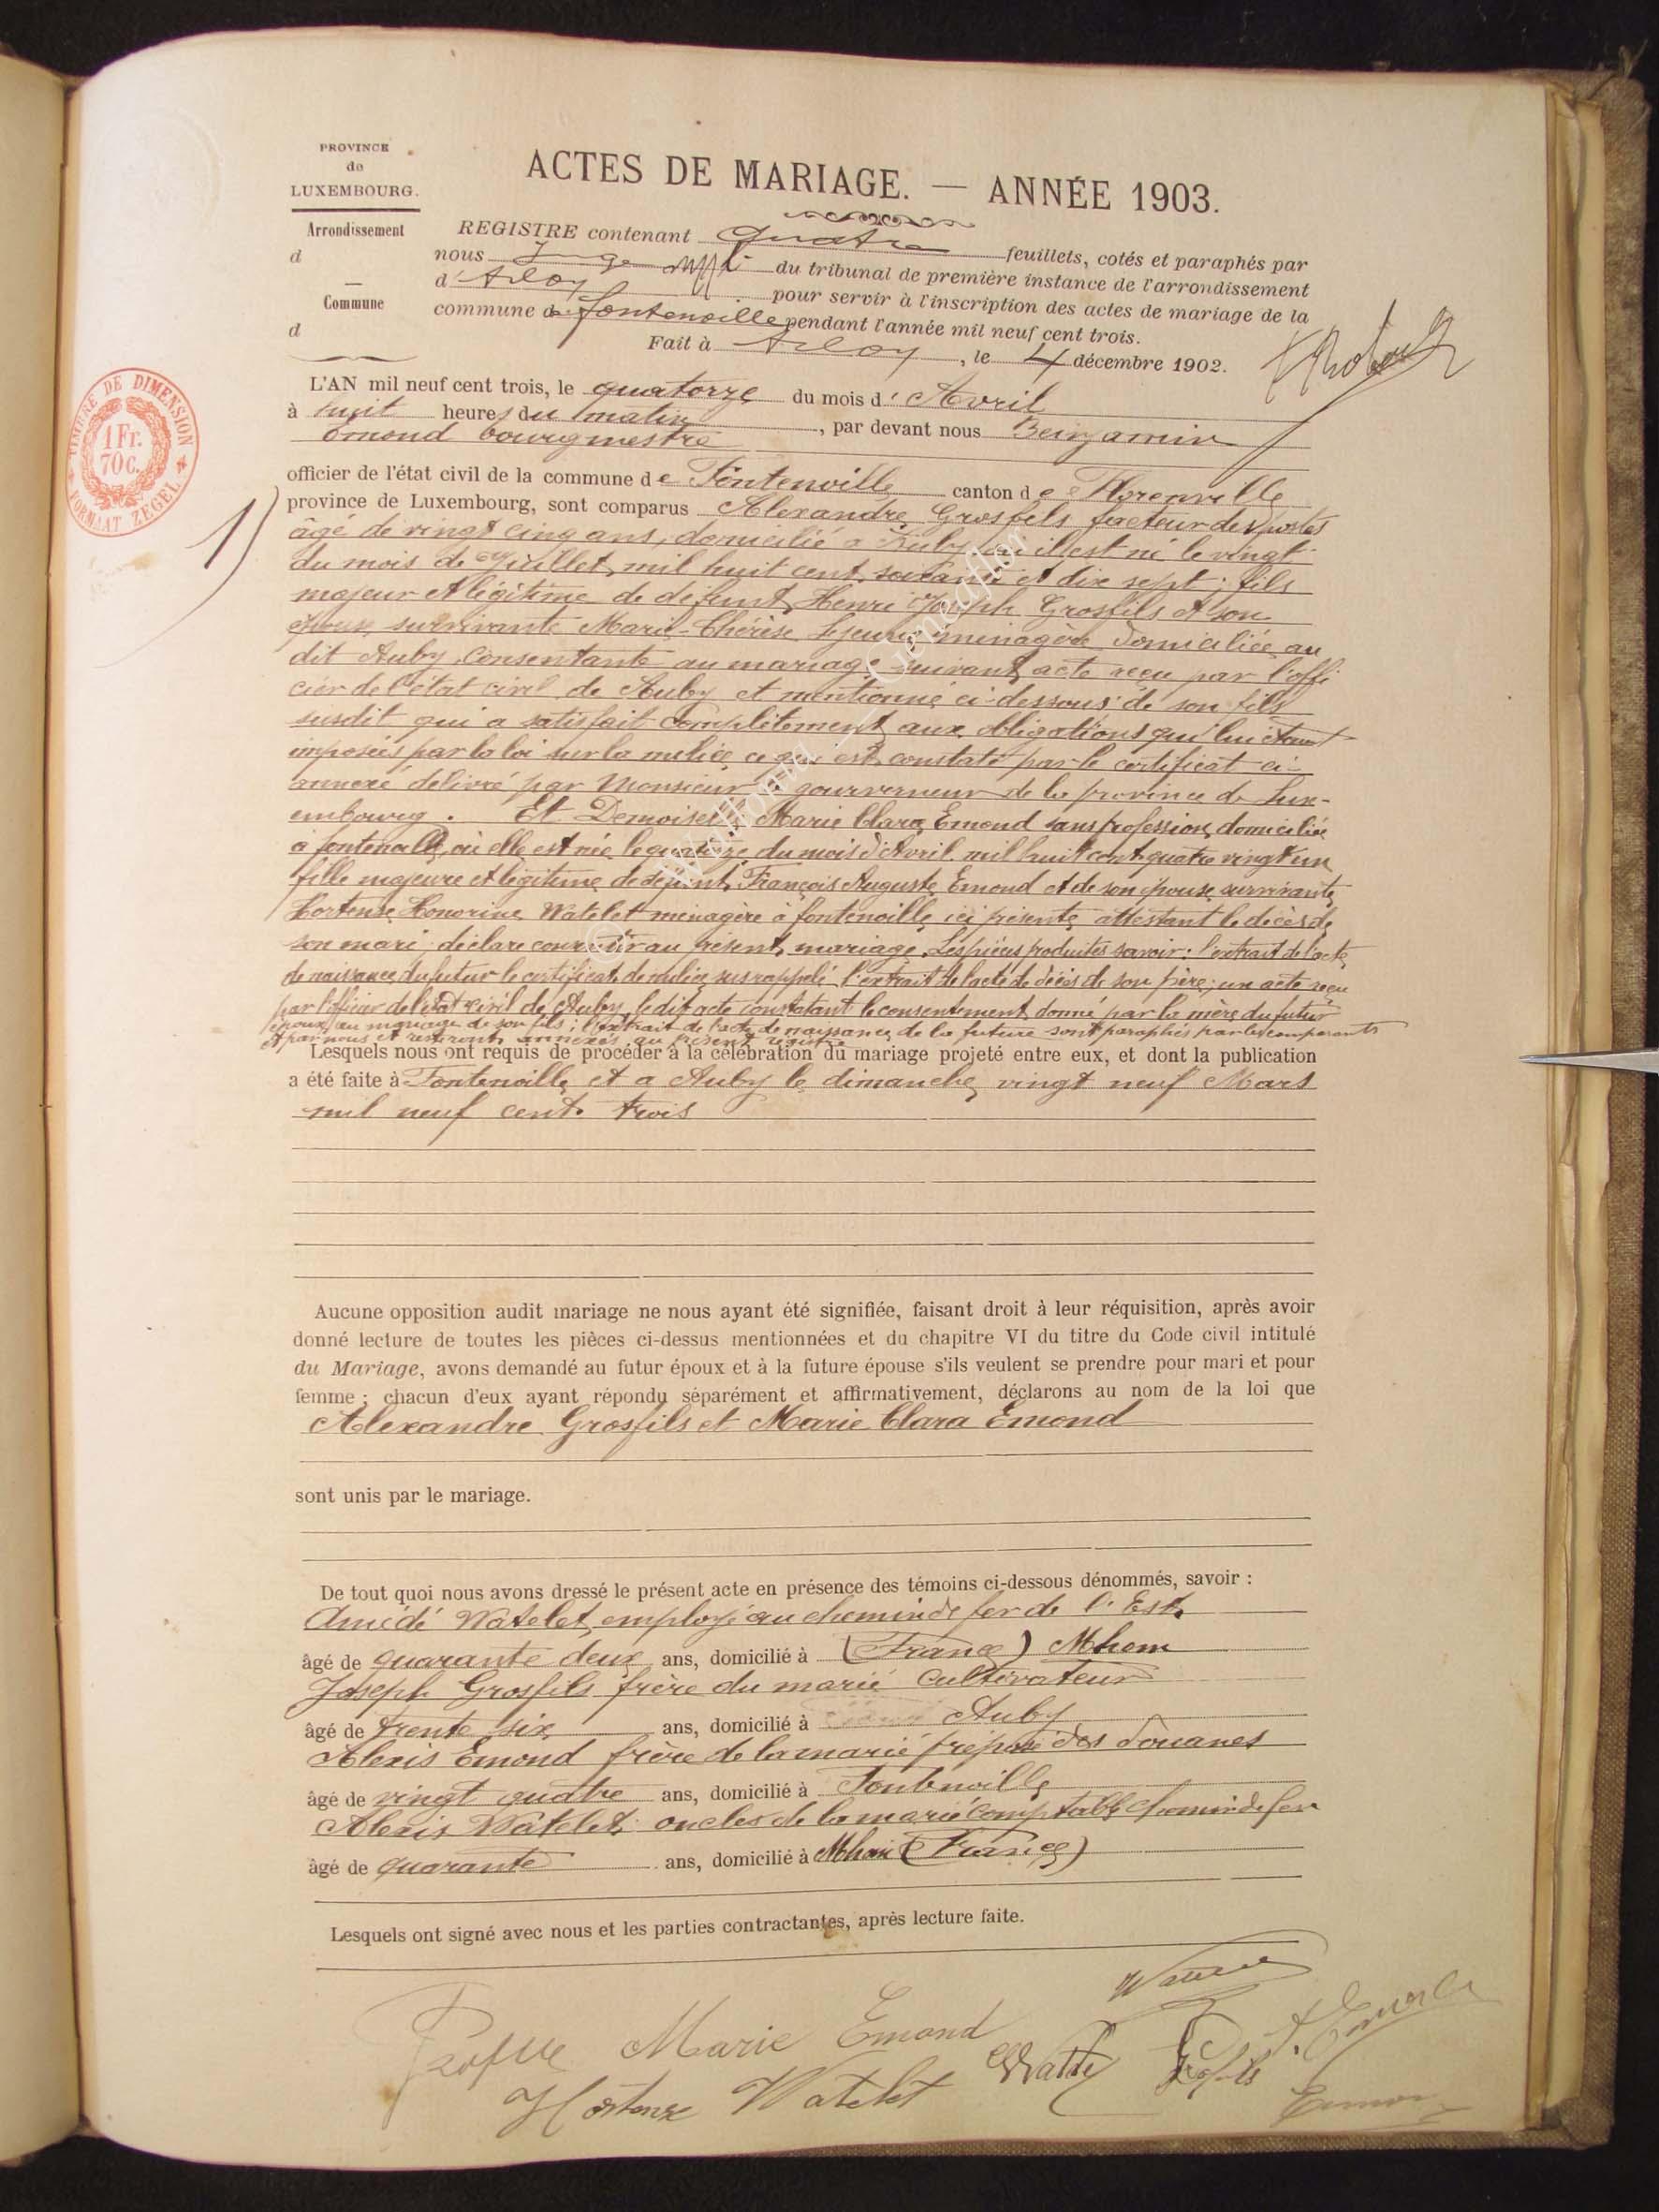 PROVINCE
de
LUXEMBOURG.
Arrondissement
d
Commune
d
ACTES DE MARIAGE. — ANNÉE 1903.
REGISTRE contenant quatre feuillets, cotés et paraphés par
nous Juge du tribunal de première instance de l'arrondissement
d'Arlon pour servir à l'inscription des actes de mariage de la
commune de fontenoille pendant l'année mil neuf cent trois.
Fait à Arlon, le 4 décembre 1902.
TIMBRE DE DIMENSION
1 Fr.
70 c.
FORMAAT ZEGEL
1)
L'AN mil neuf cent trois, le quatorze du mois d'Avril
à huit heures du matin, par devant nous Benjamin
Emond bourgmestre
officier de l'état civil de la commune de Fontenoille canton de Florenville
province de Luxembourg, sont comparus Alexandre Grosfils facteur des postes
âgé de vingt cinq ans, domicilié à Auby où il est né le vingt
du mois de Juillet mil huit cent soixante et dix sept; fils
majeur et légitime de défunt Henri Joseph Grosfils et son
épouse survivante Marie-Thérèse Lejeune ménagère domiciliée au
dit Auby, consentante au mariage suivant acte reçu par l'offi
cier de l'état civil de Auby et mentionné ci-dessous de son fils
susdit qui a satisfait complètement aux obligations qui lui étaient
imposées par la loi sur la milice ce qui est constaté par le certificat ci-
annexé délivré par Monsieur le gouverneur de la province de Lux-
embourg. Et Demoiselle Marie Clara Emond sans profession, domiciliée
à fontenoille, où elle est née le quatorze du mois d'Avril mil huit cent quatre vingt un
fille majeure et légitime de défunt François Auguste Emond et de son épouse survivante
Hortense Honorine Watelet ménagère à fontenoille, ici présente attestant le décès de
son mari déclare consentir au présent mariage. Les pièces produites savoir: l'extrait de l'acte
de naissance du futur le certificat de milice susrappelé l'extrait de l'acte de décès de son père; un acte reçu
par l'officier de l'état civil de Auby, ledit acte constatant le consentement donné par la mère du futur
époux au mariage de son fils; l'extrait de l'acte de naissance de la future sont paraphés par les comparants
et par nous et resteront annexés au présent registre
Lesquels nous ont requis de procéder à la célébration du mariage projeté entre eux, et dont la publication
a été faite à Fontenoille et a Auby le dimanche vingt neuf Mars
mil neuf cent trois
Aucune opposition audit mariage ne nous ayant été signifiée, faisant droit à leur réquisition, après avoir
donné lecture de toutes les pièces ci-dessus mentionnées et du chapitre VI du titre du Code civil intitulé
du Mariage, avons demandé au futur époux et à la future épouse s'ils veulent se prendre pour mari et pour
femme ; chacun d'eux ayant répondu séparément et affirmativement, déclarons au nom de la loi que
Alexandre Grosfils et Marie Clara Emond
sont unis par le mariage.
De tout quoi nous avons dressé le présent acte en présence des témoins ci-dessous dénommés, savoir :
Amédé Watelet, employé au chemin de fer de l'Est
âgé de quarante deux ans, domicilié à (France) Mhom
Joseph Grosfils frère du marié cultivateur
âgé de trente six ans, domicilié à Auby
Alexis Emond frère de la marié préposé des douanes
âgé de vingt quatre ans, domicilié à Fontenoille
Alexis Watelet oncles de la marié comptable chemin de fer
âgé de quarante ans, domicilié à (France)
Lesquels ont signé avec nous et les parties contractantes, après lecture faite.
Marie Emond
Hortense Watelet
Grosfils
A. Emond
Emond